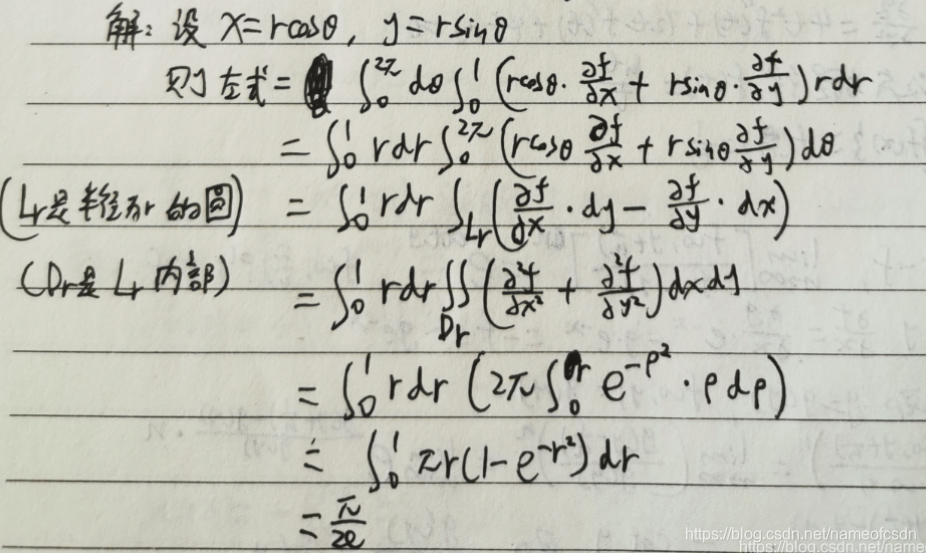 解: 设 x=rcosθ, y=rsinθ
则 左式 = ∫₀^{2π} dθ ∫₀^1 (rcosθ·∂f/∂x + rsinθ·∂f/∂y) rdr
= ∫₀^1 rdr ∫₀^{2π} (rcosθ ∂f/∂x + rsinθ ∂f/∂y) dθ
(Lr是半径为r的圆) = ∫₀^1 rdr ∫_{Lr} (∂f/∂x·dy − ∂f/∂y·dx)
(Dr是Lr内部) = ∫₀^1 rdr ∬_{Dr} (∂²f/∂x² + ∂²f/∂y²) dxdy
= ∫₀^1 rdr (2π∫₀^r e^{-ρ²}·ρdρ)
= ∫₀^1 πr(1-e^{-r²}) dr
= π/2e
https://blog.csdn.net/nameofcsdn
https://blog.csdn.net/name